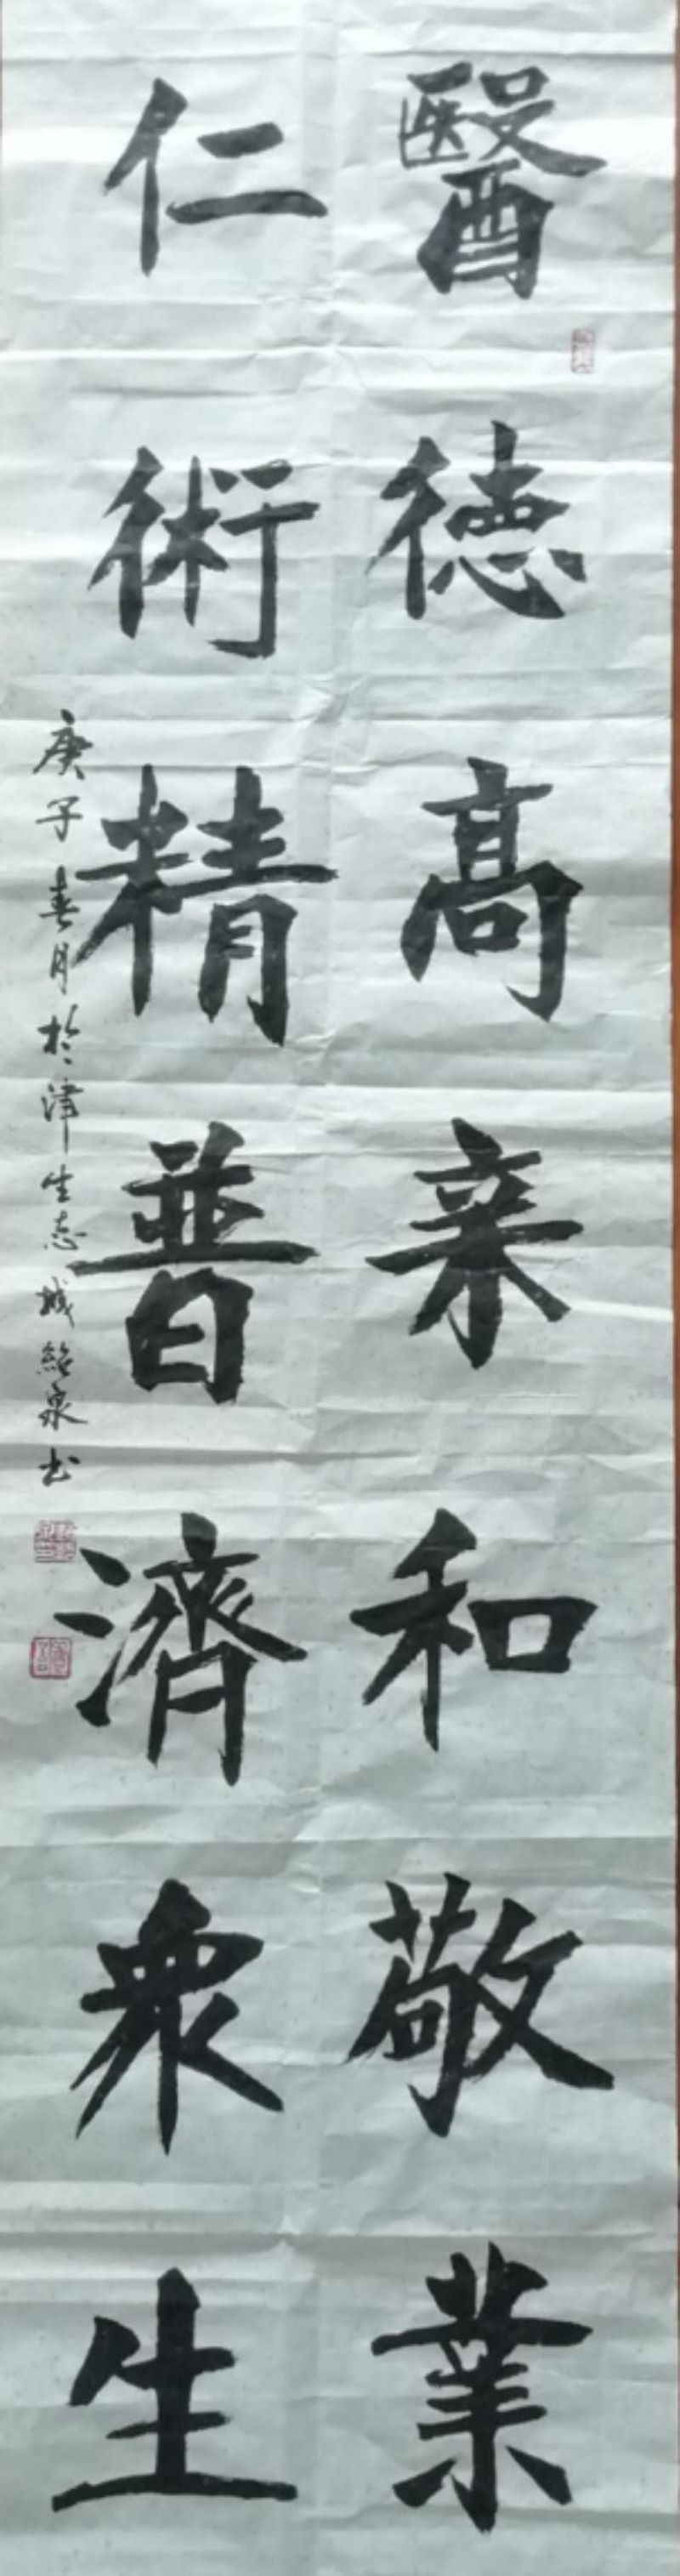 醫德高亲和敬業
仁術精普濟衆生
庚子春月於津生态城紹泉书